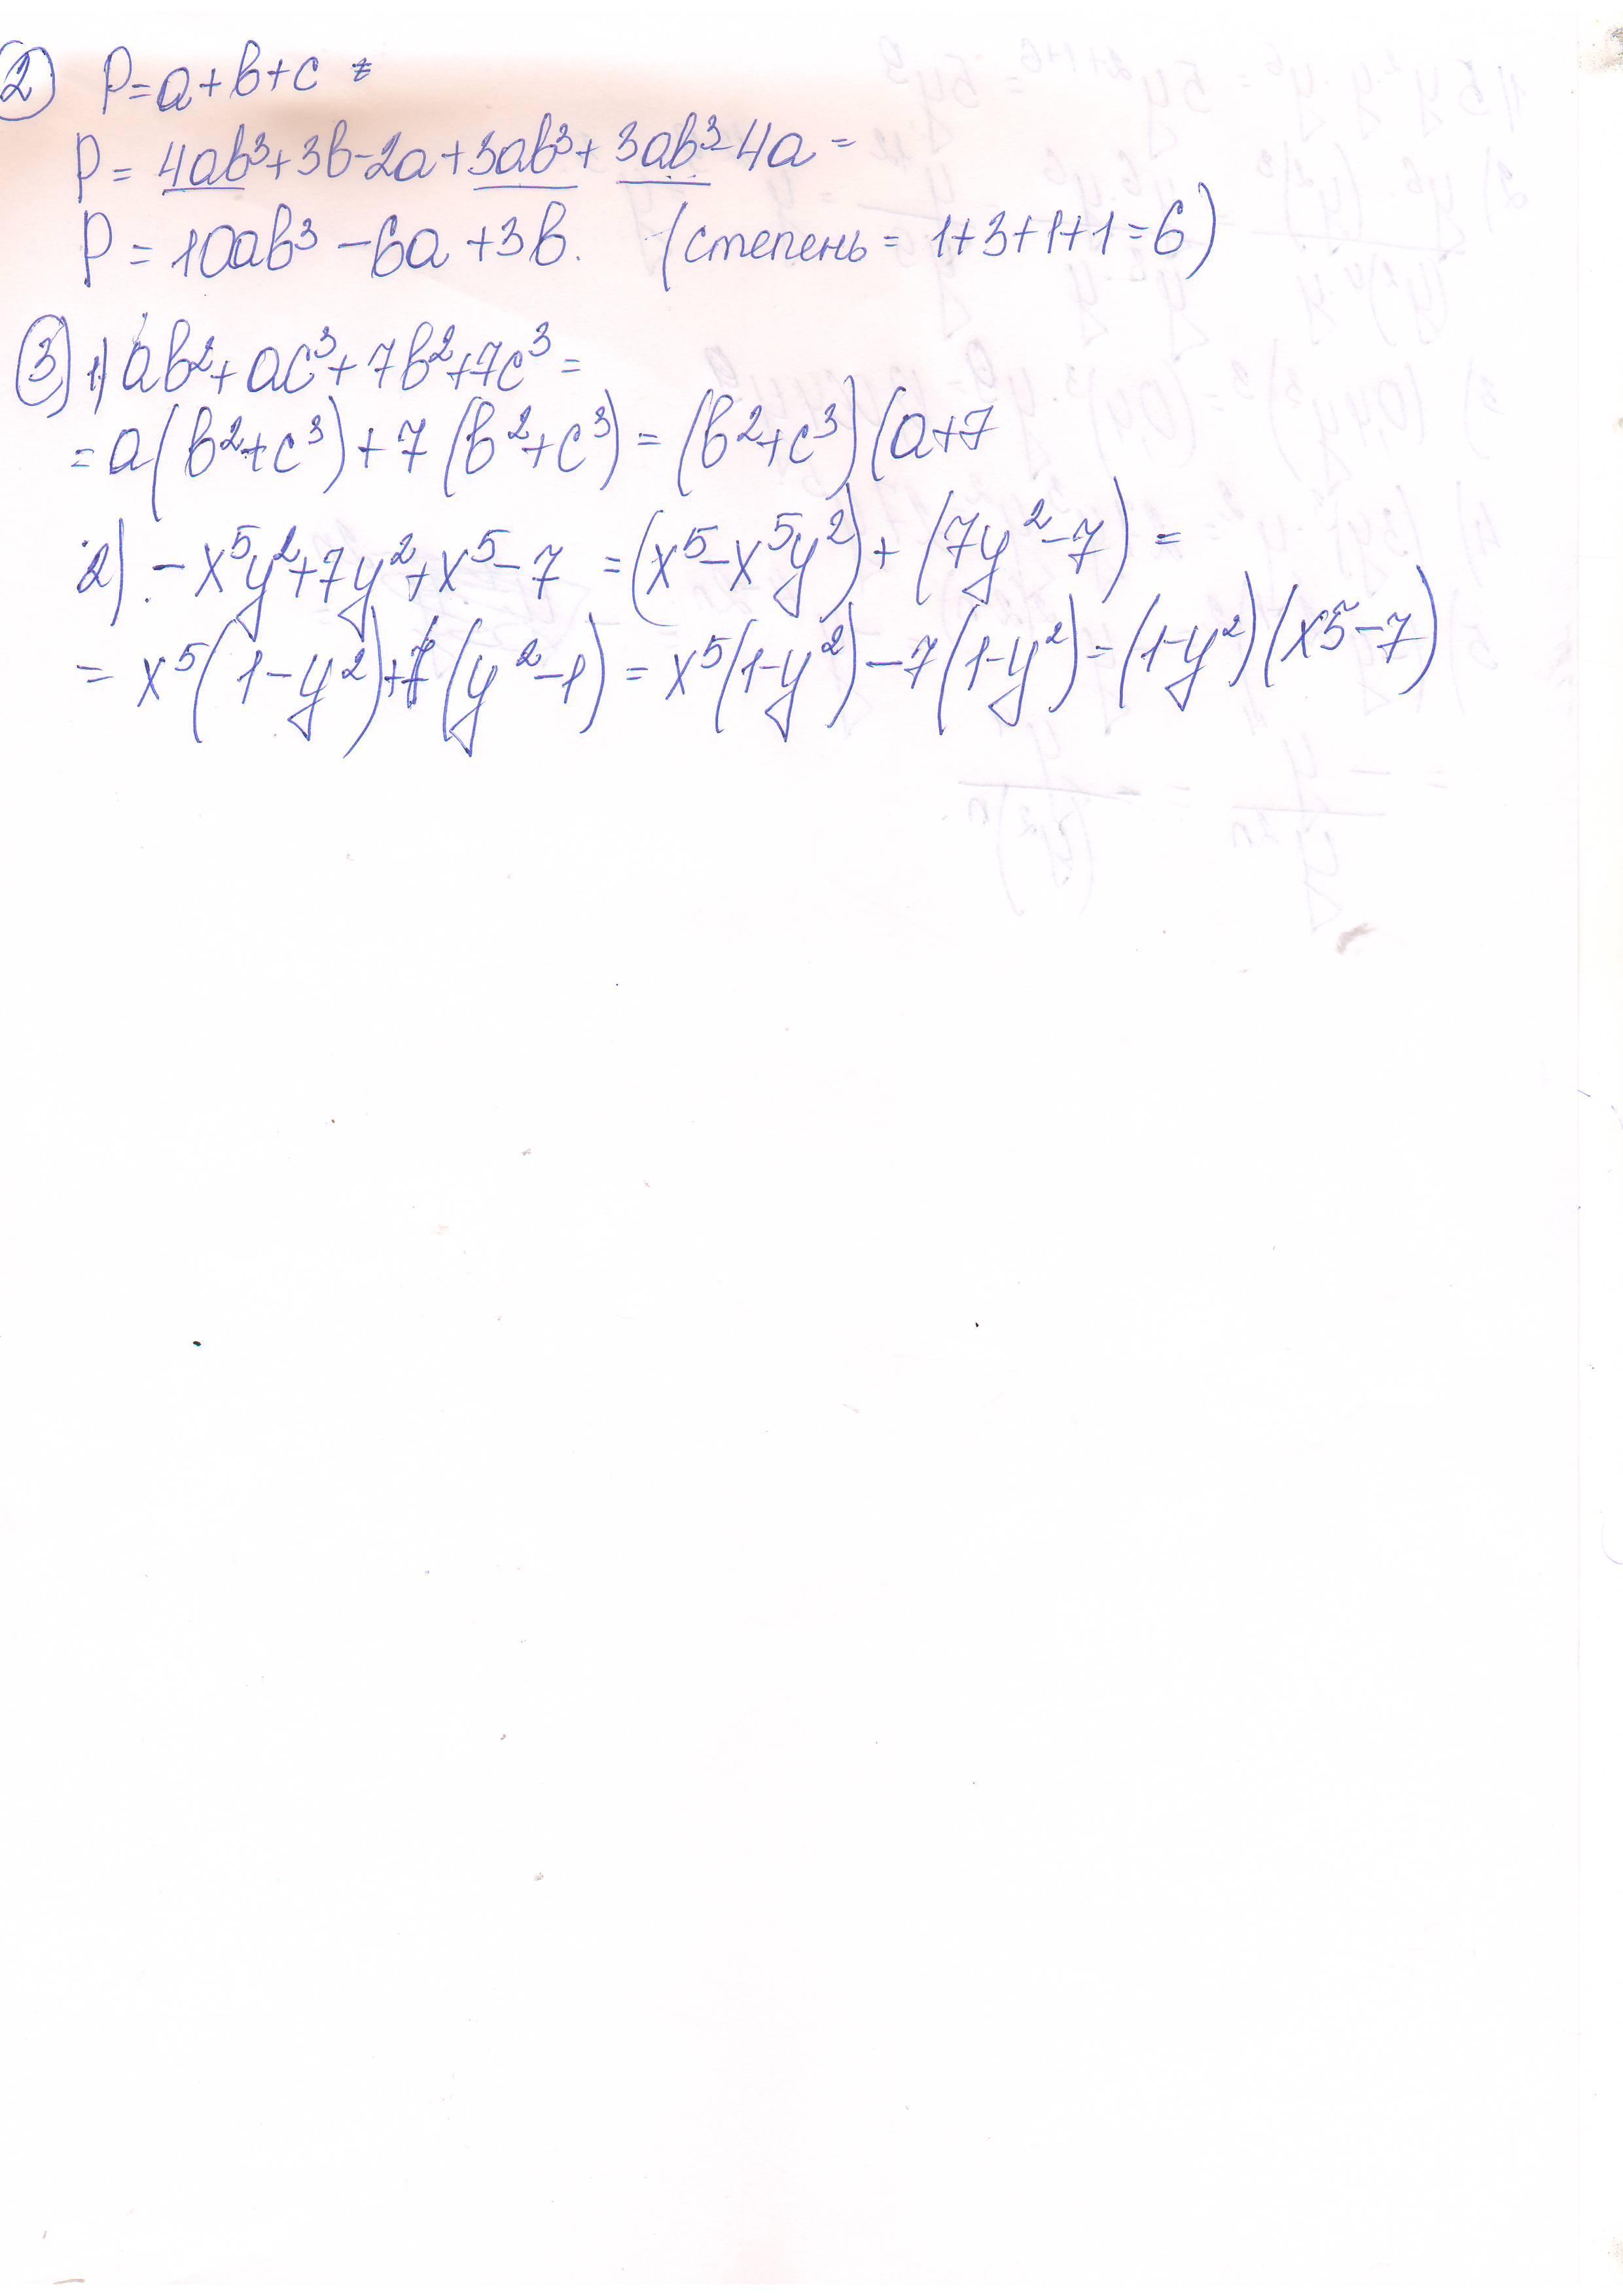 2) P=a+b+c =
P = 4ab³+3b-2a+3ab³+3ab³-4a =
P = 10ab³-6a+3b. (степень = 1+3+1+1=6)
3) 1) ab²+ac³+7b²+7c³=
=a(b²+c³)+7(b²+c³)=(b²+c³)(a+7
2) -x⁵y²+7y²+x⁵-7 =(x⁵-x⁵y²)+(7y²-7)=
= x⁵(1-y²)+7(y²-1)=x⁵(1-y²)-7(1-y²)=(1-y²)(x⁵-7)